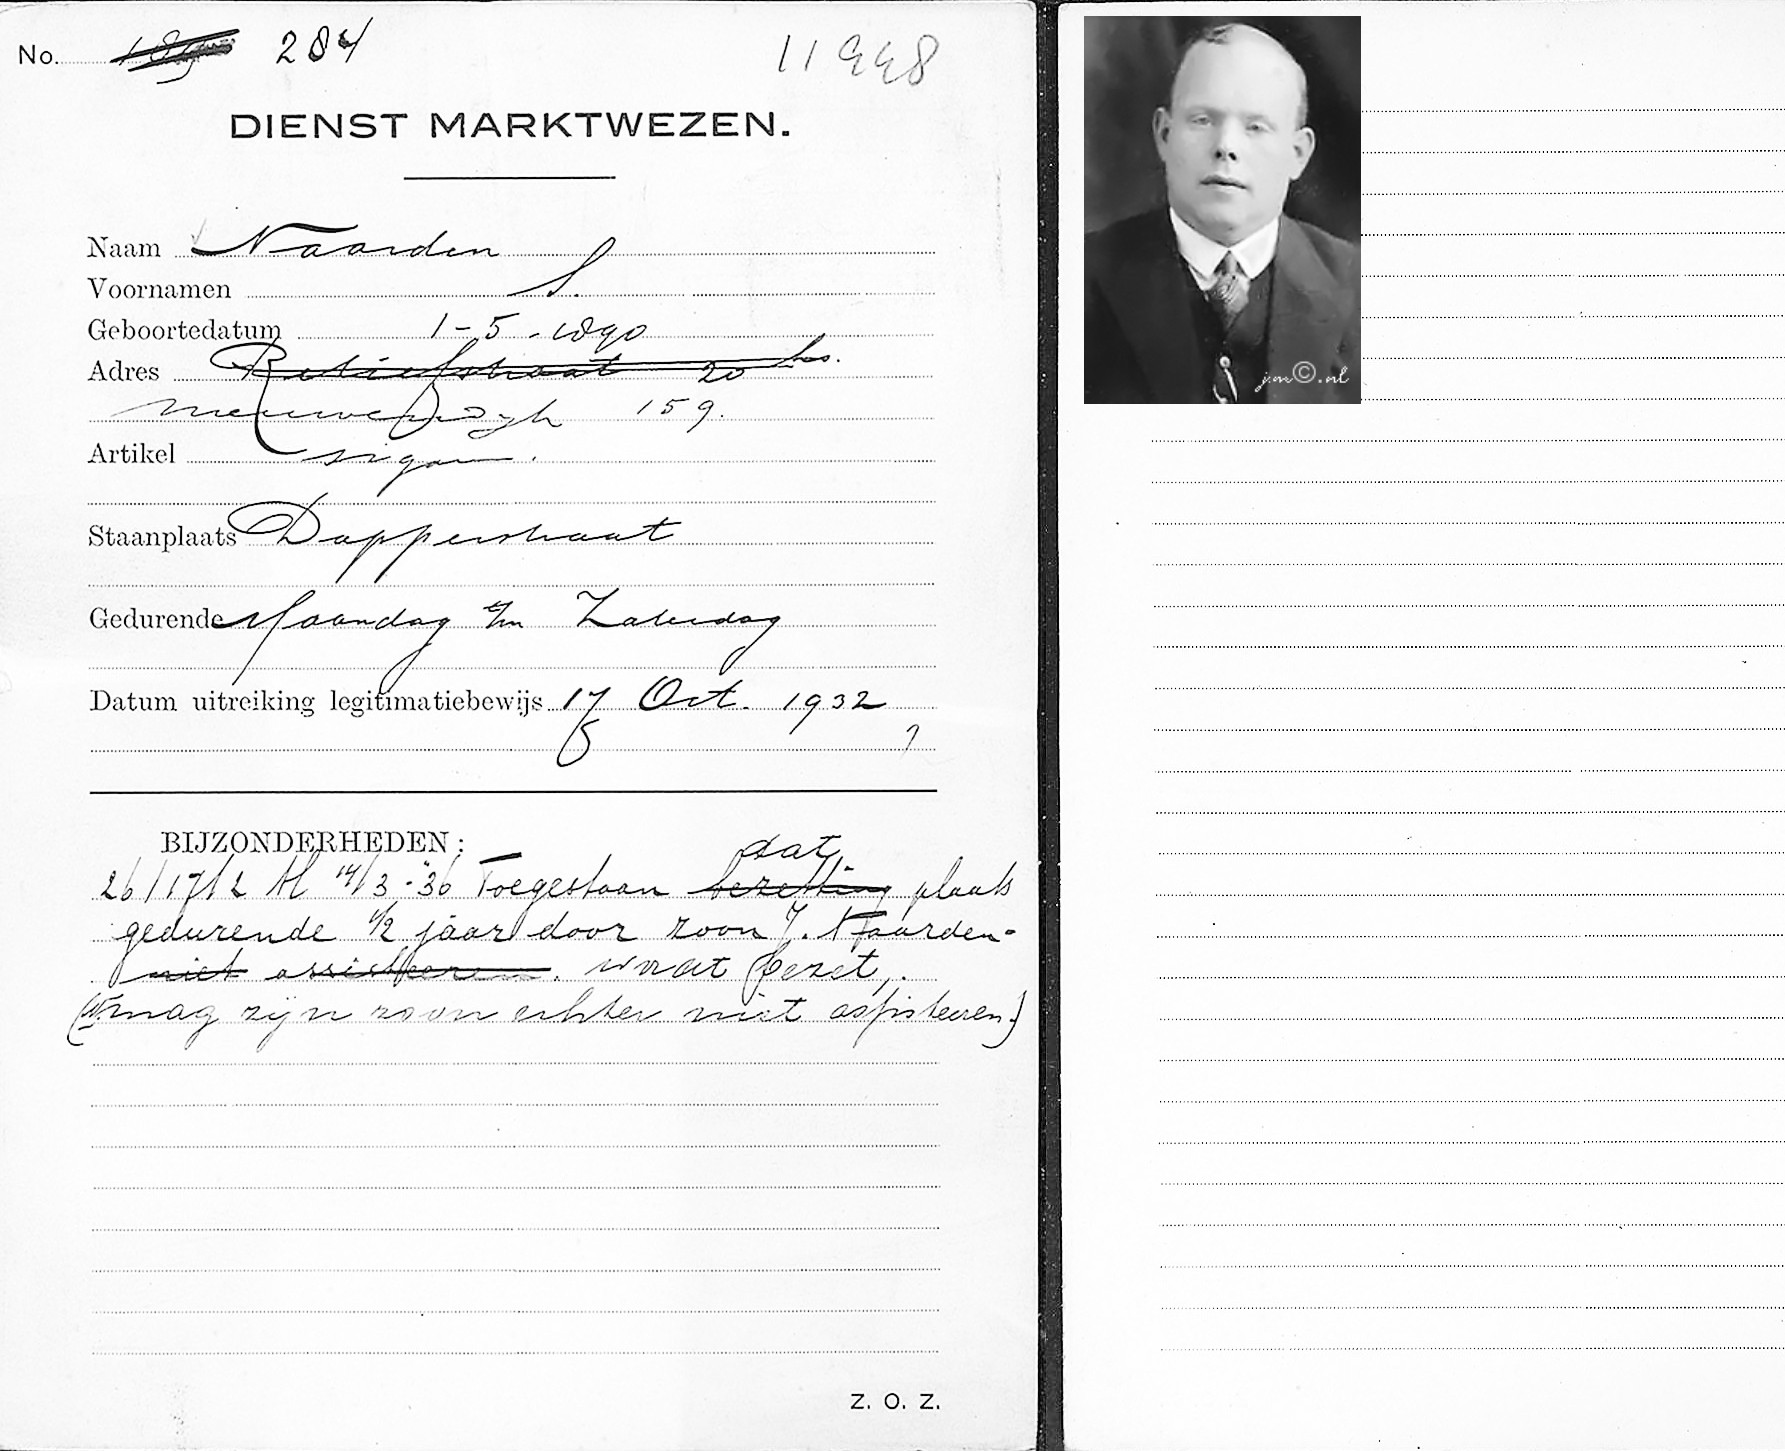 No. 284 11998
DIENST MARKTWEZEN.
Naam Naarden
Voornamen S.
Geboortedatum 1-5-1890
Adres Retiefstraat 20 hs.
Nieuwendijk 159.
Artikel sigaren.
Staanplaats Dapperstraat
Gedurende Maandag t/m Zaterdag
Datum uitreiking legitimatiebewijs 17 Oct. 1932
BIJZONDERHEDEN:
dat
26/17/2 M 14/3-'36 Toegestaan bezetting plaats
gedurende 1/2 jaar door zoon J. Naarden
niet assisteeren. wordt bezet,
(N. mag zijn zoon echter niet assisteeren.)
Z. O. Z.
jm©.nl